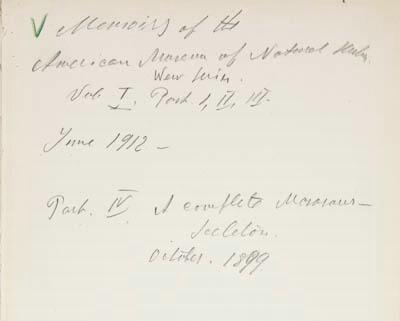 V Memoirs of the
American Museum of Natural
New Series.
Vol. I. Part. I, II, III.
June 1912 —
Part. IV A complete Mosasaur —
Skeleton.
October. 1899